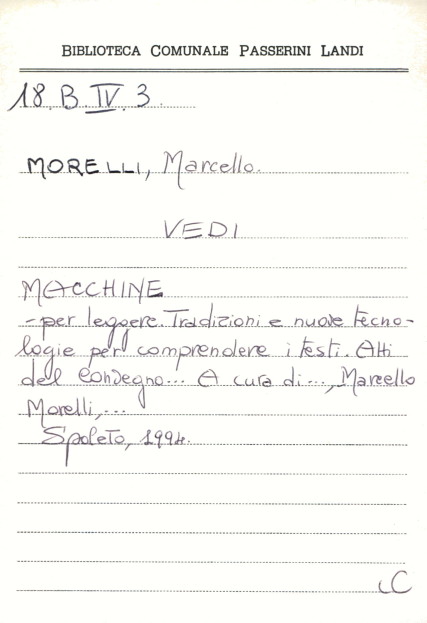 BIBLIOTECA COMUNALE PASSERINI LANDI
18. B. IV. 3.
MORELLI, Marcello.
VEDI
MACCHINE
- per leggere. Tradizioni e nuove tecno-
logie per comprendere i testi. Atti
del convegno... A cura di ..., Marcello
Morelli,...
Spoleto, 1994.
iC